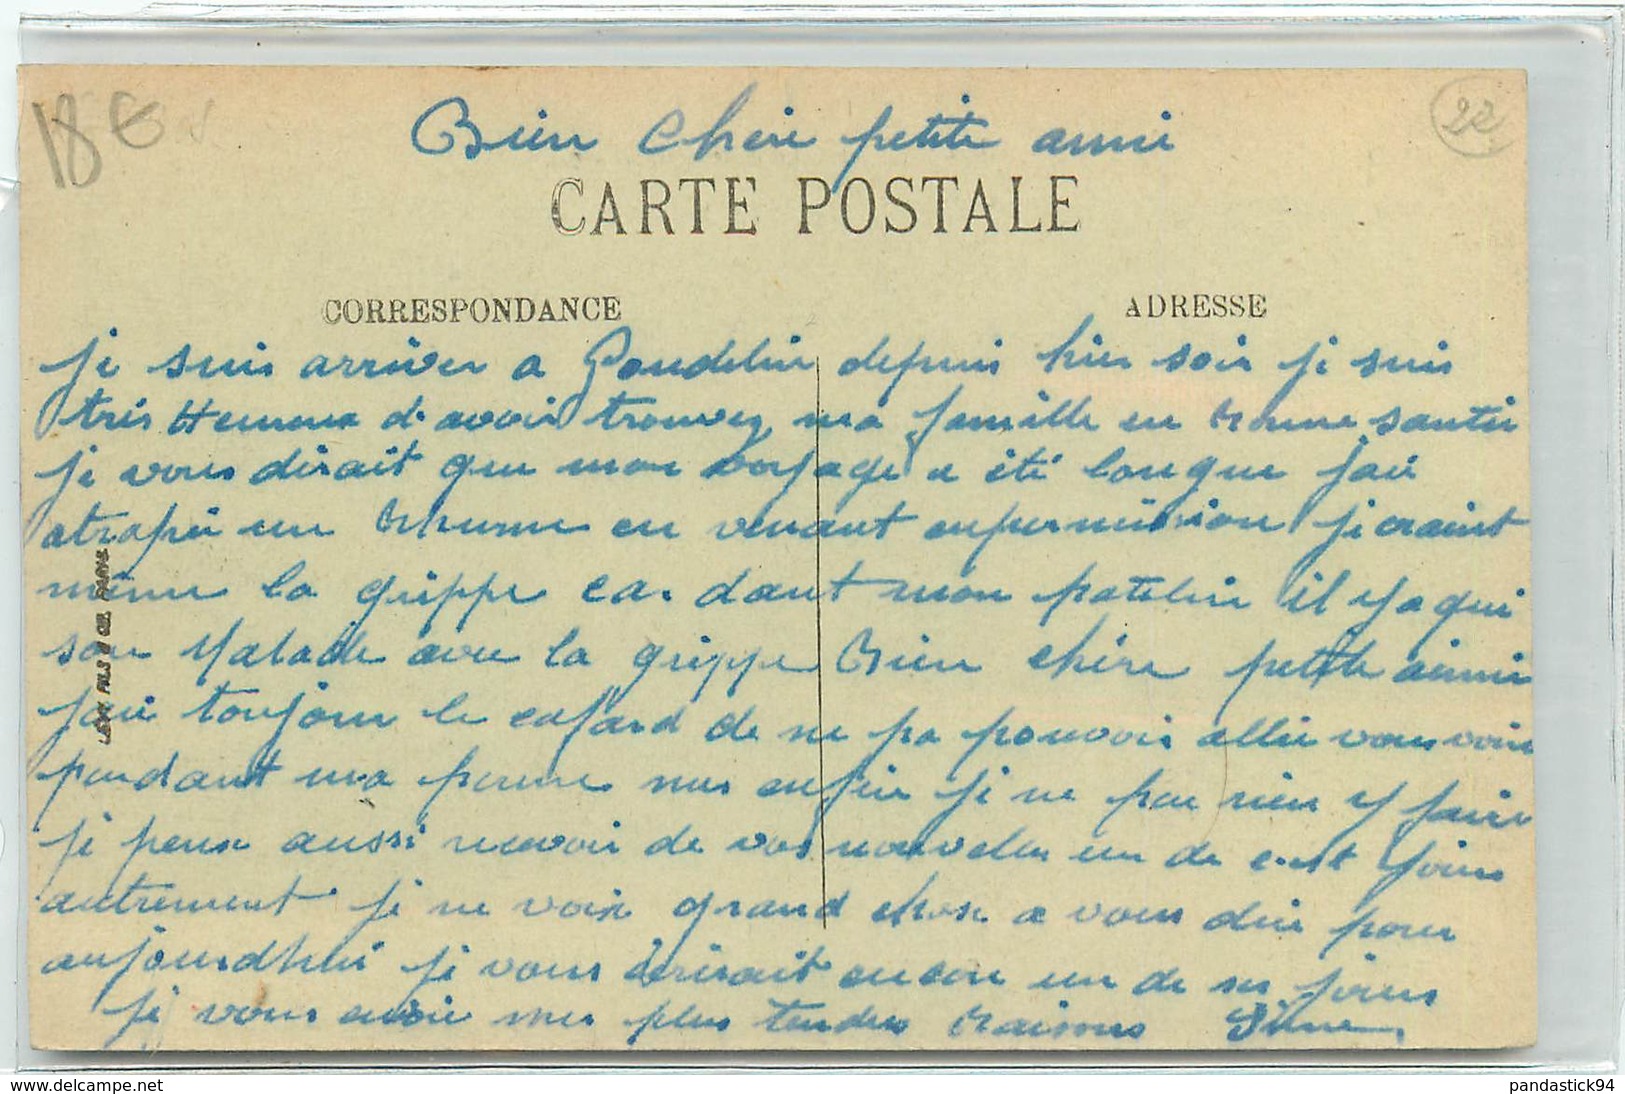 18€
22
Bien Chère petite amie
CARTE POSTALE
CORRESPONDANCE
ADRESSE
je suis arriver a Goudelin depuis hier soir je suis
très Heureux d'avoir trouvez ma famille en bonne santée
je vous dirait que mon voyage a été longue jai
atrapée un Rhume en venant enpermission je craint
même la grippe car dant mon patelin il y a qui
son Malade avec la grippe Bien chère petite aimie
jai toujour le cafard de ne pa pouvoir allée vous voir
pendant ma perme mes enfin je ne peu rien y faire
je peux aussi recevoir de vos nouvelles un de c'est jours
autrement je ne voix grand chose a vous dire pour
aujourdhui je vous écrirait encore un de ses jours
je vous envoie mes plus tendre Baisers
LEVY FILS & CIE. PARIS
www.delcampe.net
pandastick94